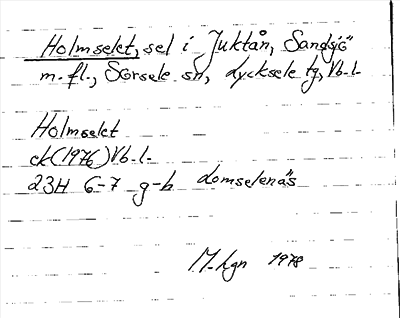 Holmselet, sel i Juktån, Sandsjö
m.fl., Sorsele sn, Lycksele tg, Vb.l.
Holmselet
ek (1976) Vb.l.
23H 6-7 g-h Lomselenäs
M. Lgn 1978